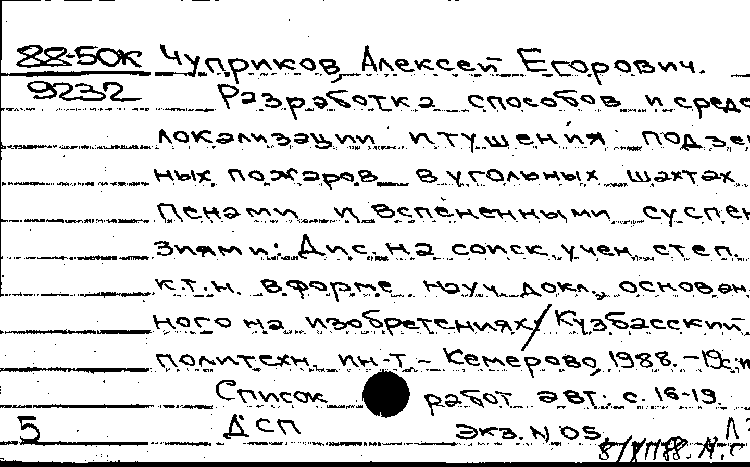 88-50К Чуприков, Алексей Егорович.
9232 Разработка способов и средс
локализации и тушения подзе
ных пожаров в угольных шахтах
пенами и вспененными суспен
зиями: Дис. на соиск. учен. степ.
к.т.н. в форме науч. докл., основан
ного на изобретениях/Кузбасский
политехн. ин-т - Кемерово, 1988. -19с.
Список работ авт.: с. 16-19.
5 ДСП Экз. N 05